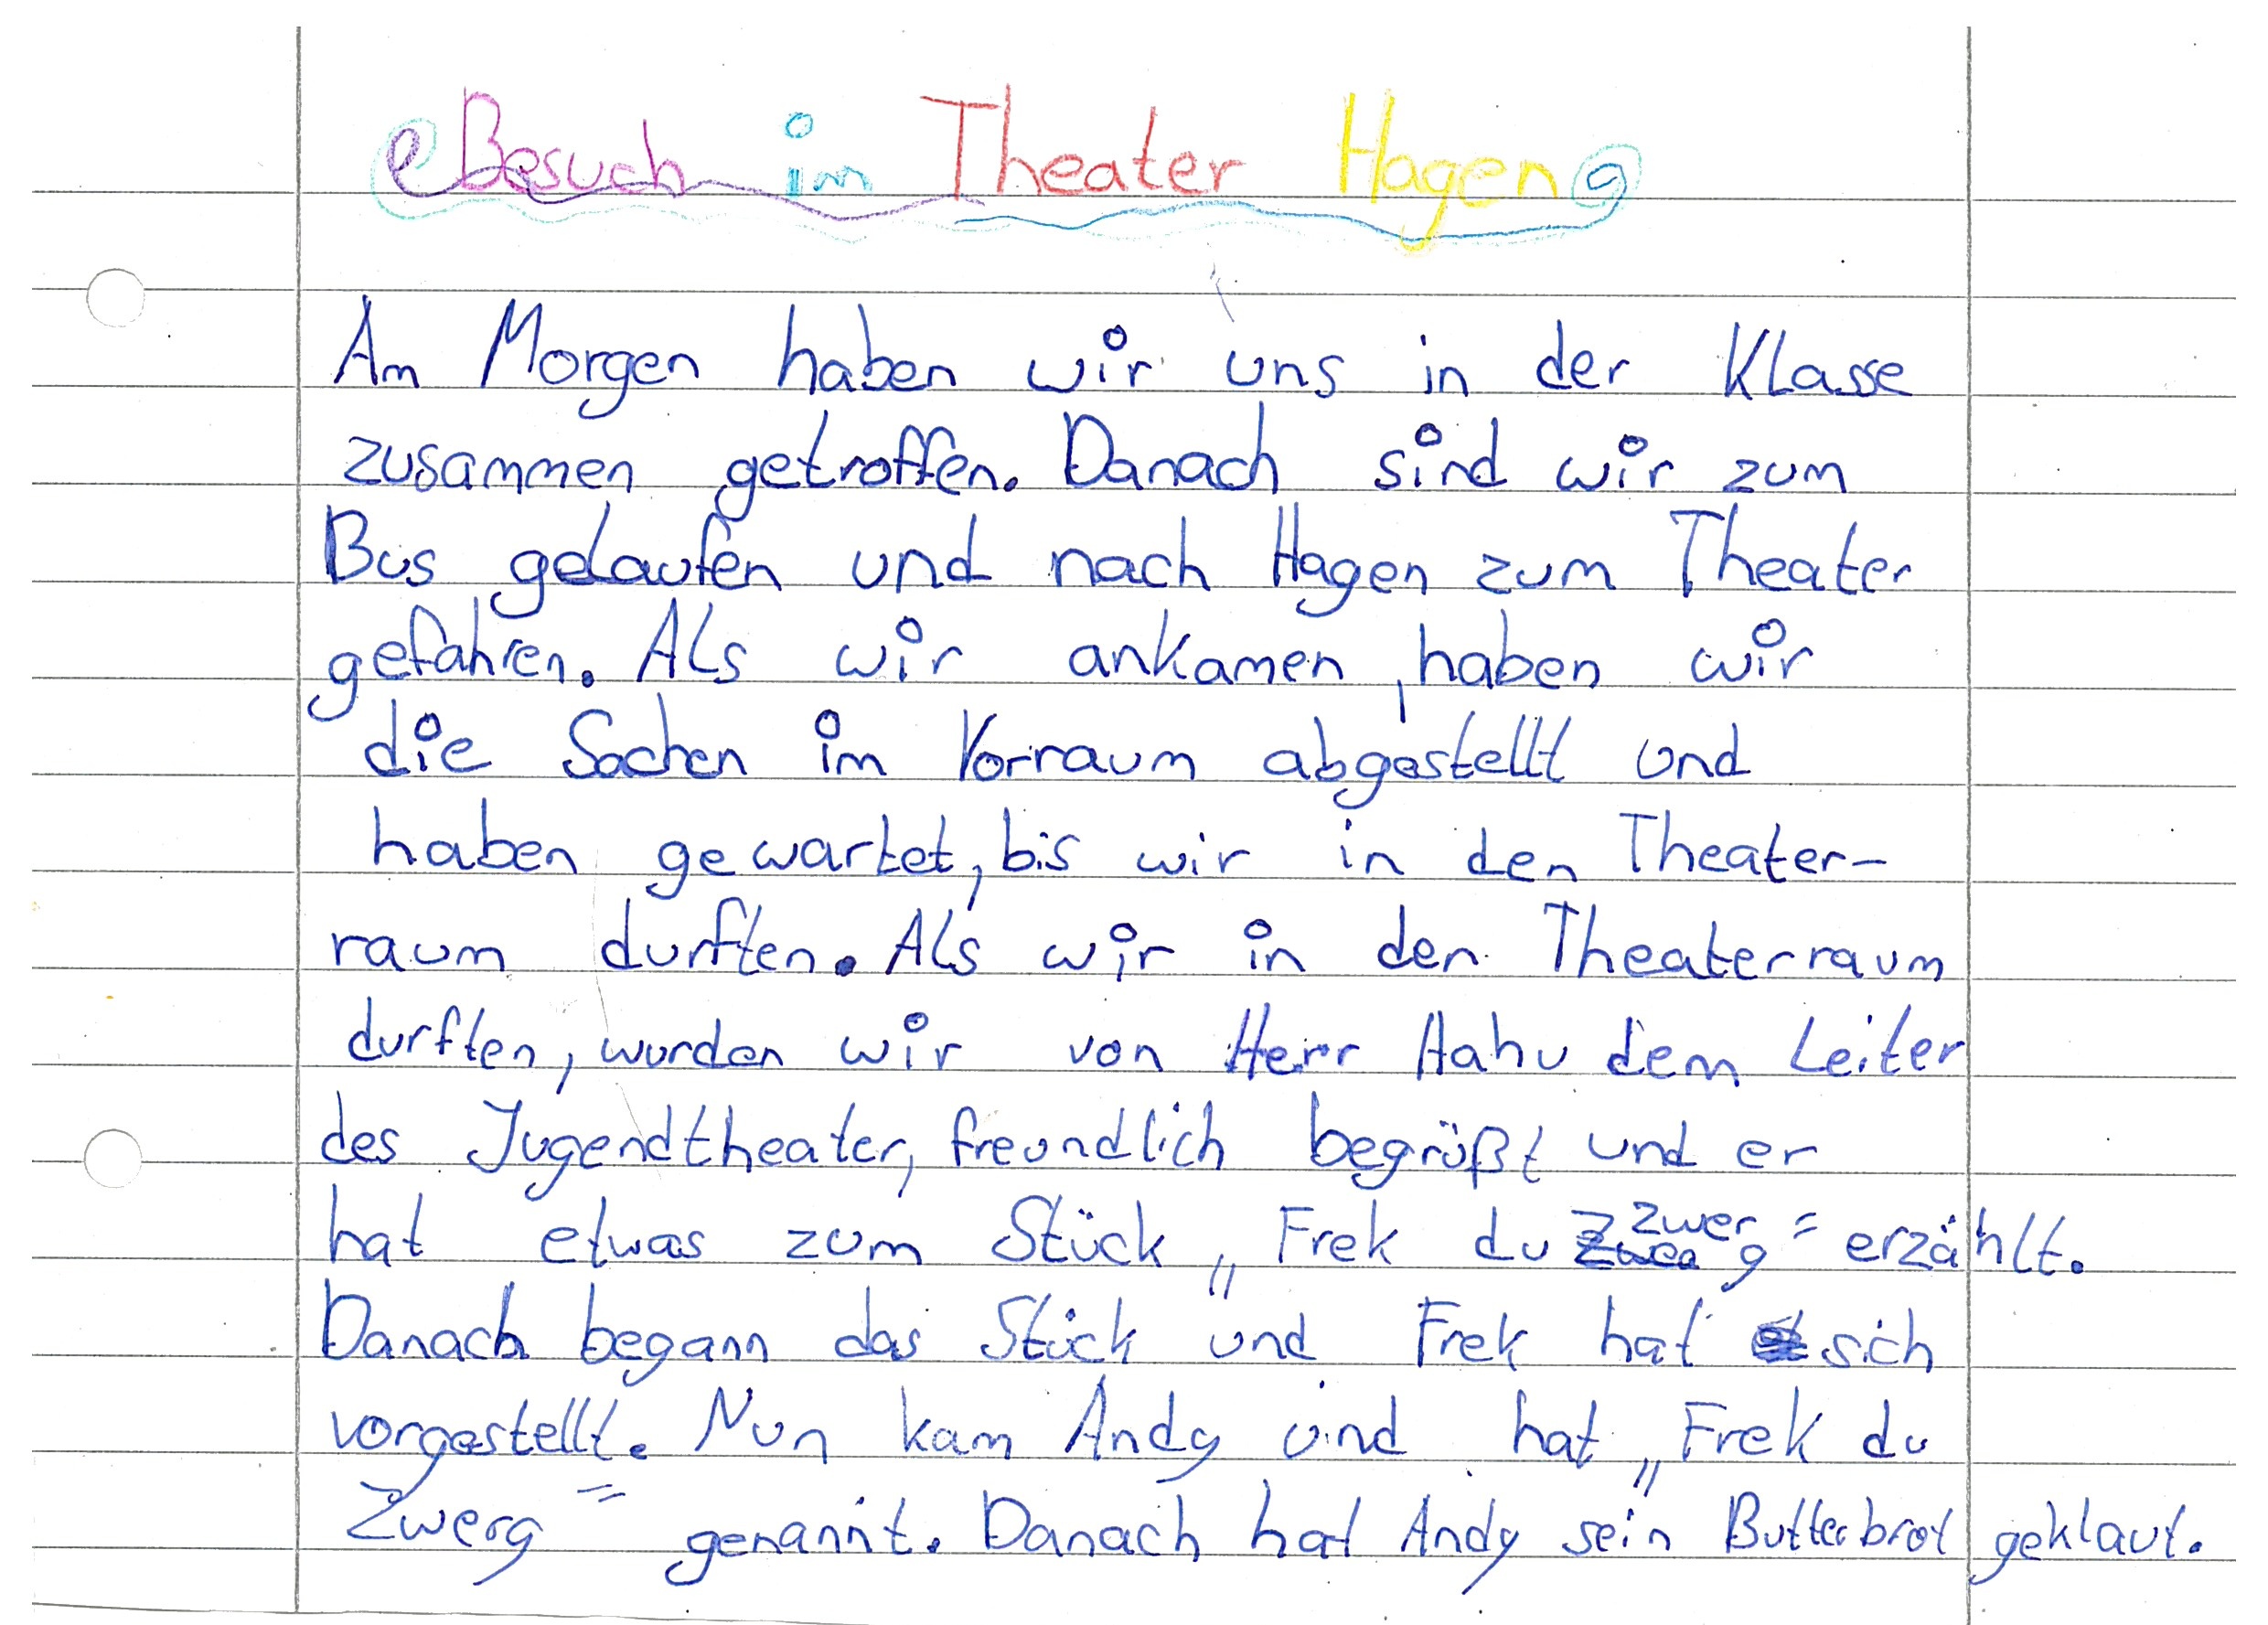 Besuch im Theater Hagen
Am Morgen haben wir uns in der Klasse
zusammen getroffen. Danach sind wir zum
Bus gelaufen und nach Hagen zum Theater
gefahren. Als wir ankamen, haben wir
die Sachen im Vorraum abgestellt und
haben gewartet, bis wir in den Theater-
raum durften. Als wir in den Theaterraum
durften, wurden wir von Herr Hahu dem Leiter
des Jugendtheater, freundlich begrüßt und er
hat etwas zum Stück „Frek du Zwerg" erzählt.
Danach begann das Stück und Frek hat sich
vorgestellt. Nun kam Andy und hat „Frek du
Zwerg" genannt. Danach hat Andy sein Butterbrot geklaut.